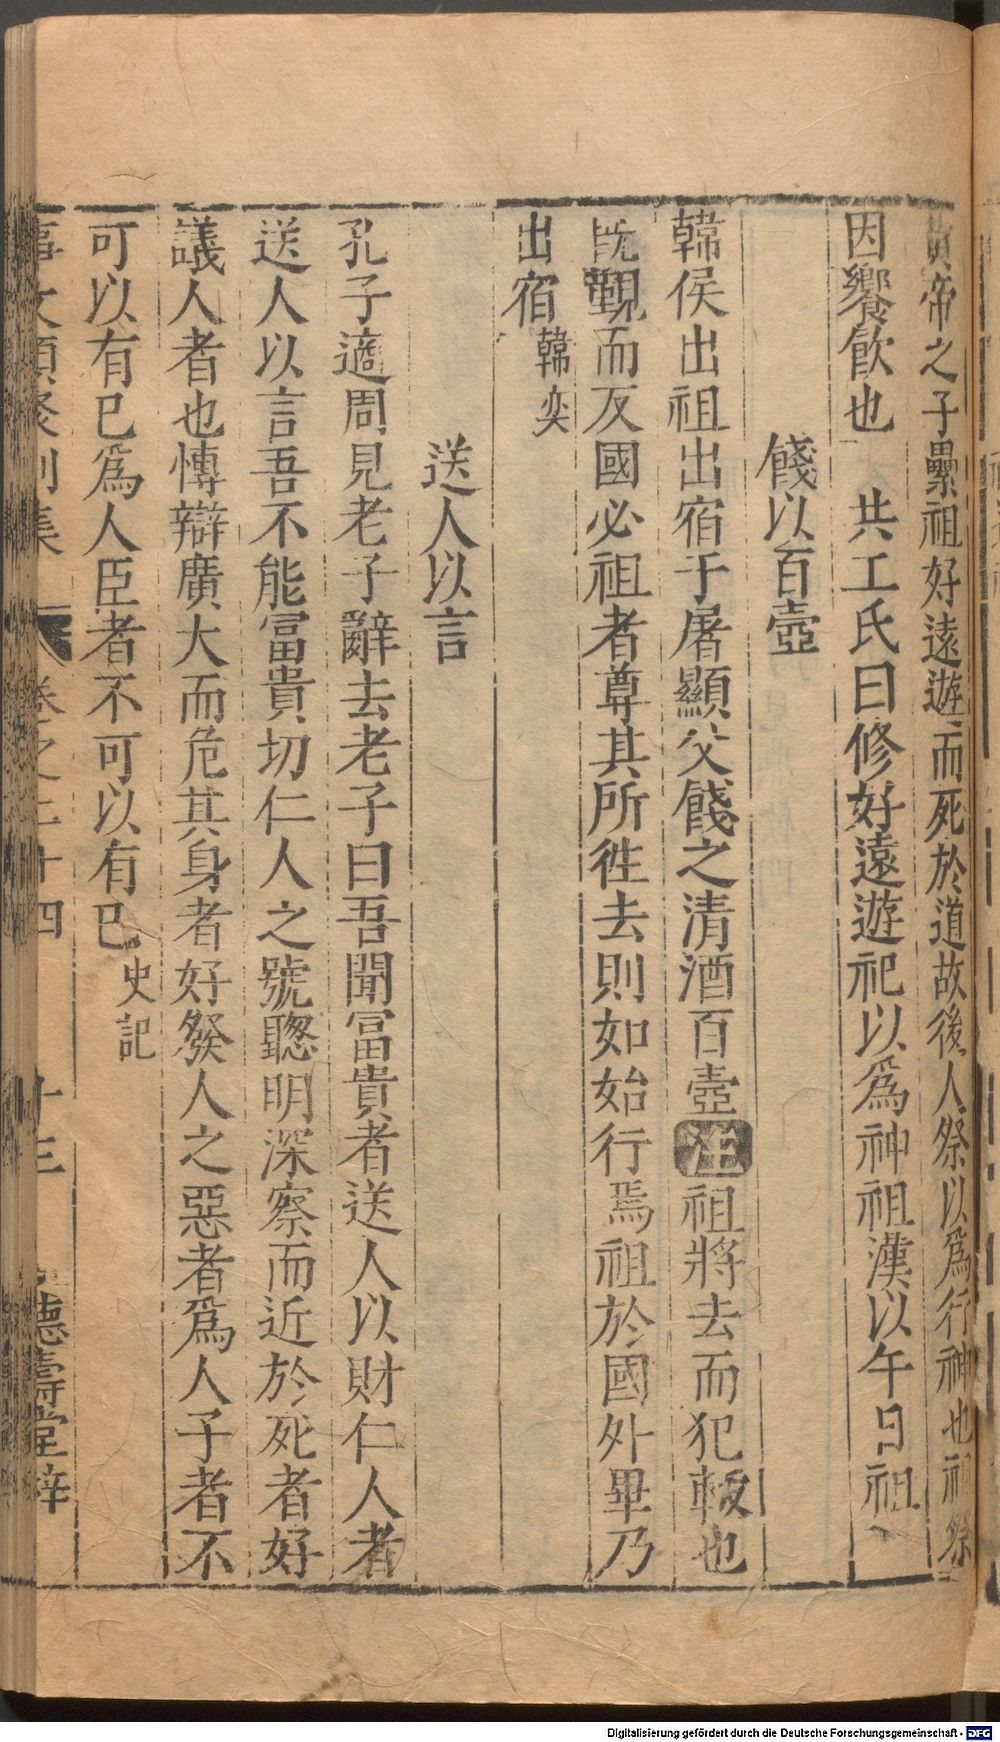 黃帝之子纍祖好遠遊而死於道故後人祭以爲行神也祖祭
因饗飲也 共工氏曰修好遠遊祀以爲神祖漢以午日祖
餞以百壺
韓侯出祖出宿于屠顯父餞之清酒百壺注祖將去而犯軷也
旣覲而反國必祖者尊其所徃去則如始行焉祖於國外畢乃
出宿韓奕
送人以言
孔子適周見老子辭去老子曰吾聞富貴者送人以財仁人者
送人以言吾不能富貴切仁人之號聦明深察而近於死者好
議人者也愽辯廣大而危其身者好發人之惡者爲人子者不
可以有已爲人臣者不可以有已史記
事文類聚别集 卷之二十四 十三 德壽堂梓
Digitalisierung gefördert durch die Deutsche Forschungsgemeinschaft - DFG